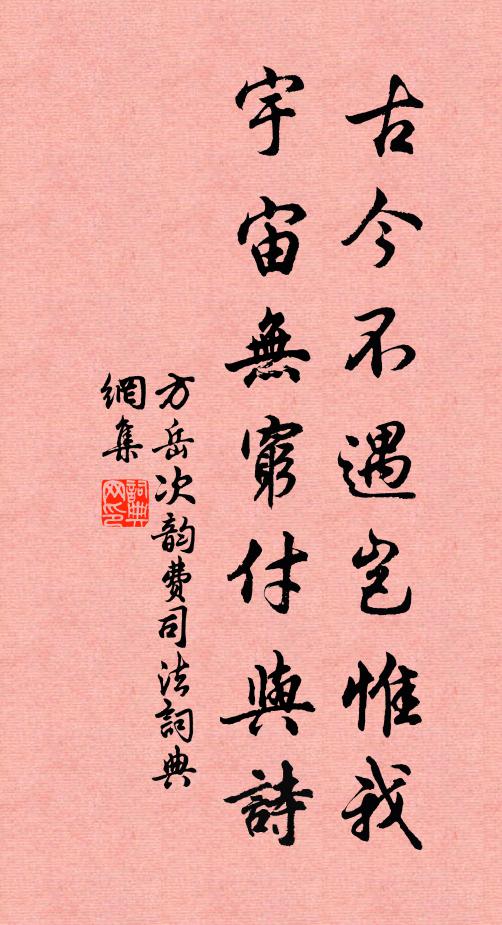 古今不遇豈惟我
宇宙無窮付與詩
方岳次韵費司法詞典
網集
詞典網印